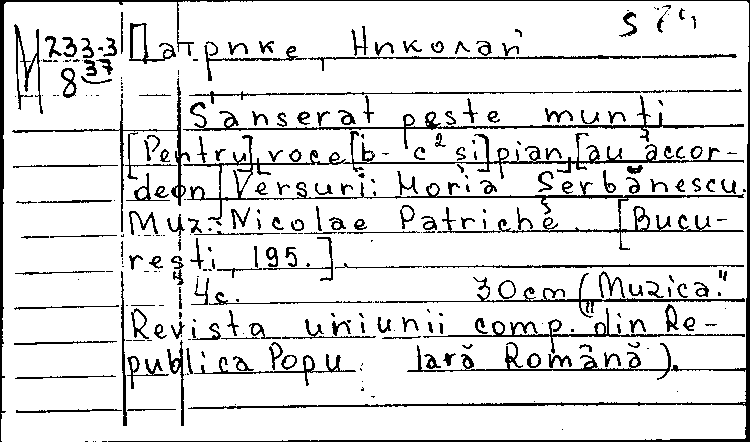 М 233-3
8 37
Патрике, Николай
S'anserat peste munţi
[Pentru] voce [b- c² şi] pian, [au accor-
deon] Versuri: Moria Şerbănescu.
Muz.: Nicolae Patriche. [Bucu-
reşti, 195.].
4c. 30cm ("Muzica."
Revista uniunii comp. din Re-
publica Populară Română).